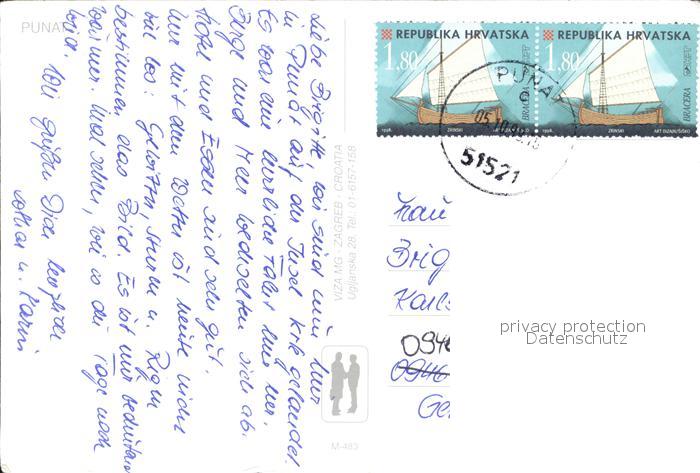 PUNAT
Liebe Brigitte, wir sind nun hier
in Punat auf der Insel Krk gelandet.
Es war eine herrliche Fahrt hier her.
Berge und Meer wechselten sich ab.
Hotel und Essen sind sehr gut.
Nur mit dem Wetter ist heute nicht
viel los: Gewitter, Sturm u. Regen
bestimmen das Bild. Es ist nur bedeutend
wärmer. Mal sehn, wie so die Tage noch
wird.
Wir grüßen Dich herzlich
u. Karin
VIZA MG · ZAGREB · CROATIA
Ugljanska 28, Tel. 01-6157-158
M-483
REPUBLIKA HRVATSKA
1,80
BRACERA
1998.
ZRINSKI
REPUBLIKA HRVATSKA
1,80
BRACERA
1998.
ZRINSKI
ART DIZAJN/ŠIŠKO
PUNAT
51521
Frau
Brig
Karl
0946
0946
Ge
privacy protection
Datenschutz